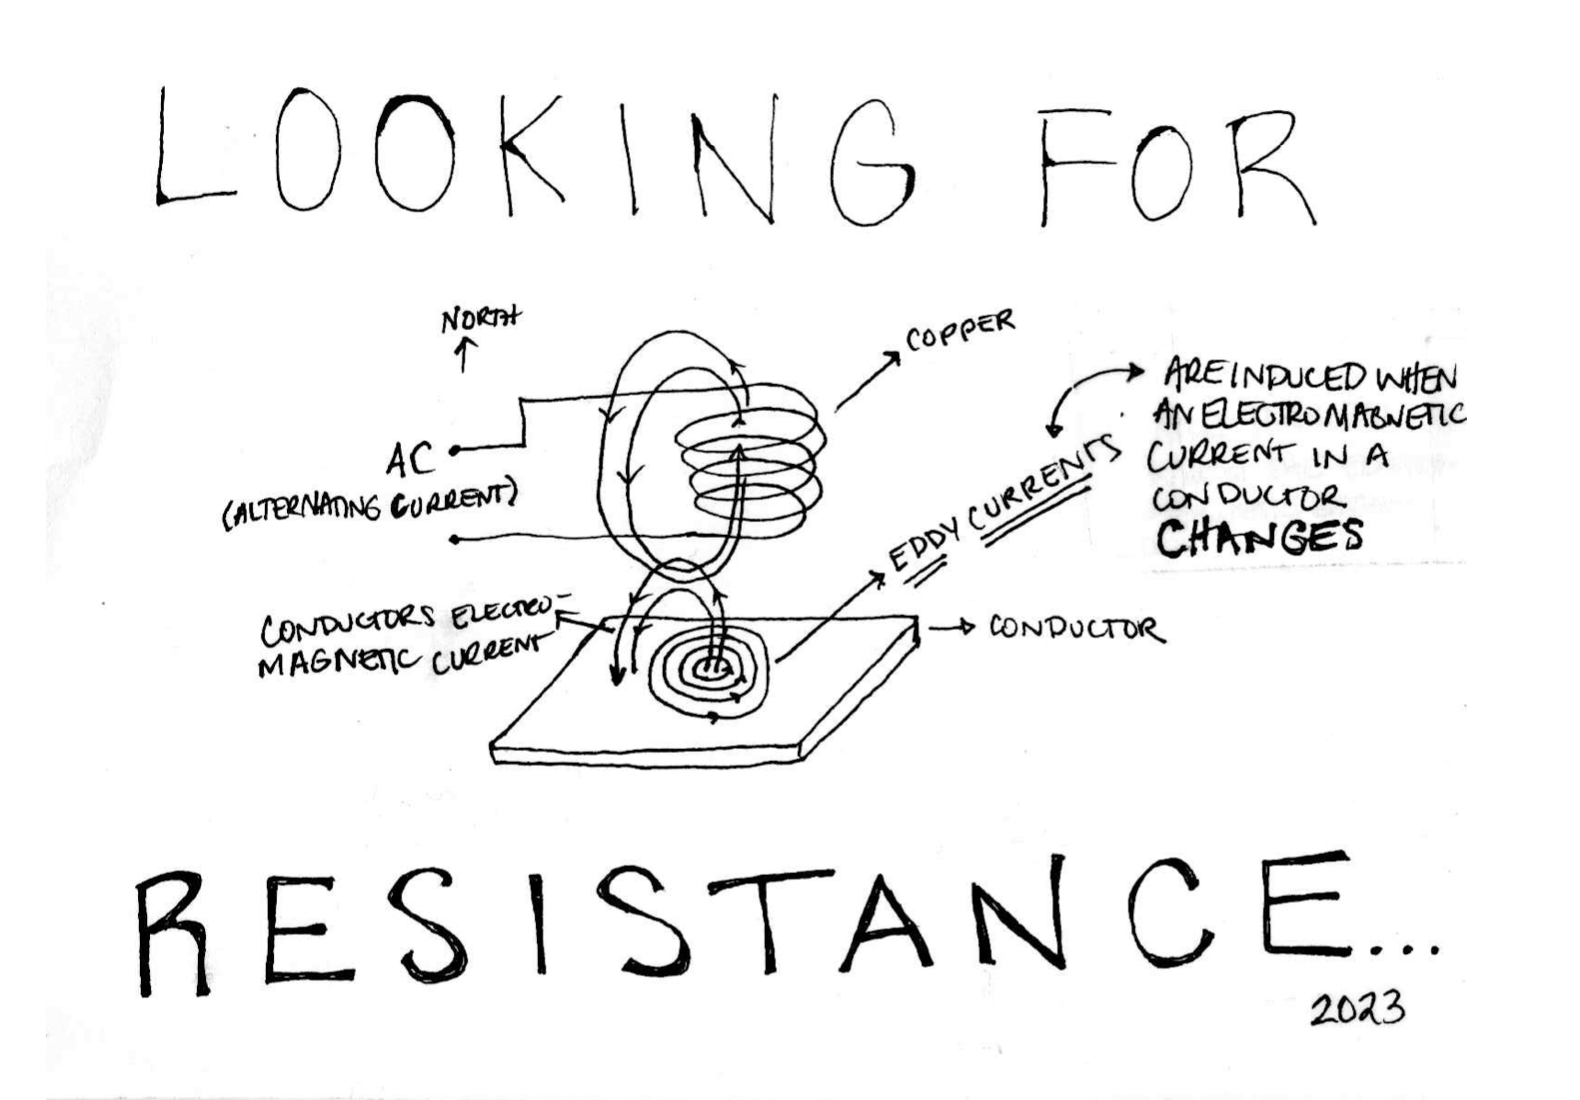 LOOKING FOR
NORTH
COPPER
AC
(ALTERNATING CURRENT)
EDDY CURRENTS
ARE INDUCED WHEN
AN ELECTROMAGNETIC
CURRENT IN A
CONDUCTOR
CHANGES
CONDUCTORS ELECTRO-
MAGNETIC CURRENT
CONDUCTOR
RESISTANCE...
2023